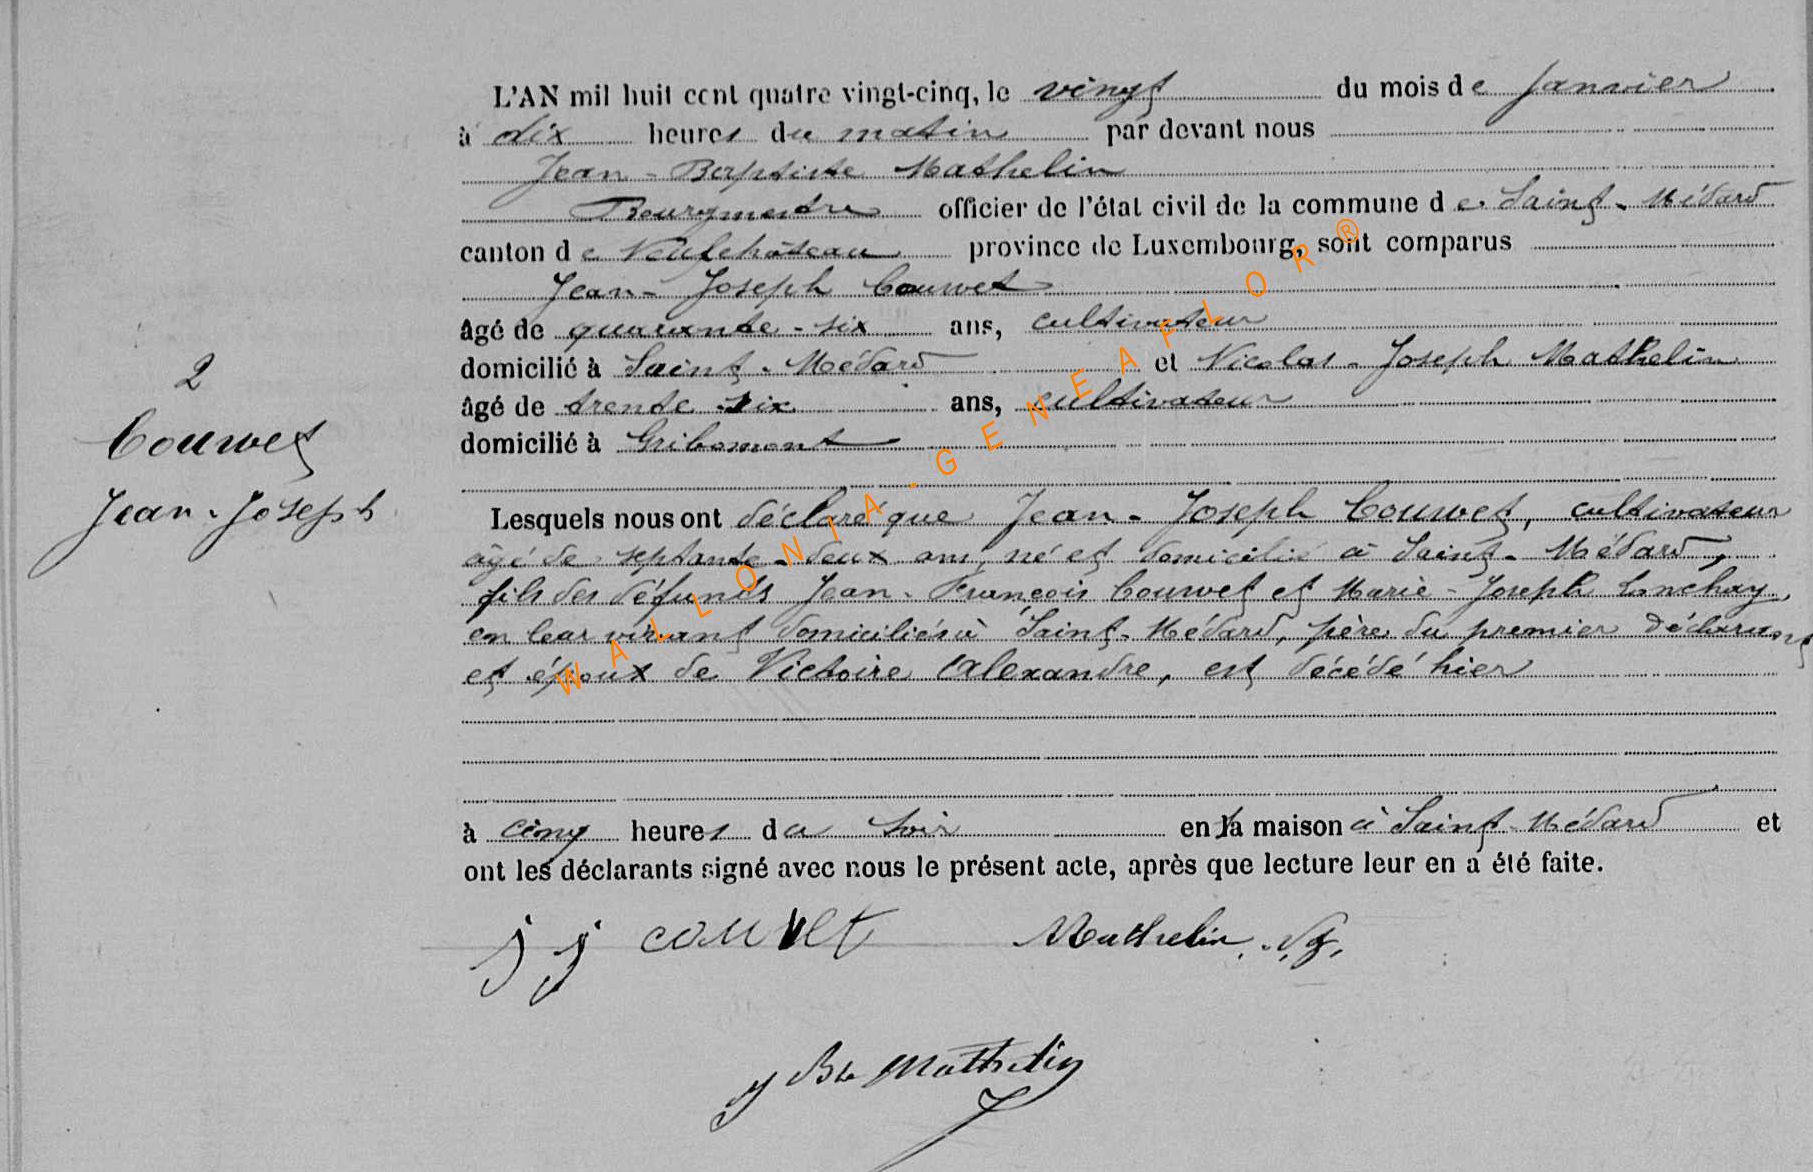 L'AN mil huit cent quatre vingt-cinq, le vingt du mois de Janvier
à dix heures du matin par devant nous
Jean-Baptiste Mathelin
Bourgmestre officier de l'état civil de la commune de Saint-Médard
canton de Neufchâteau province de Luxembourg, sont comparus
Jean-Joseph Couvet
âgé de quarante-six ans, cultivateur
domicilié à Saint-Médard et Nicolas-Joseph Mathelin
âgé de trente six ans, cultivateur
domicilié à Gribomont
2
Couvet
Jean-Joseph
Lesquels nous ont déclaré que Jean-Joseph Couvet, cultivateur
âgé de septante-deux ans, né et domicilié à Saint-Médard,
fils des défunts Jean-François Couvet et Marie-Joseph Lonchay,
en leur vivant domiciliés à Saint-Médard, père du premier déclarant
et époux de Victoire Alexandre, est décédé hier
à cinq heures du soir en la maison à Saint-Médard et
ont les déclarants signé avec nous le présent acte, après que lecture leur en a été faite.
j j couvet Mathelin. N. J.
J Bte Mathelin
WALLONIA-GENEAFLOR®